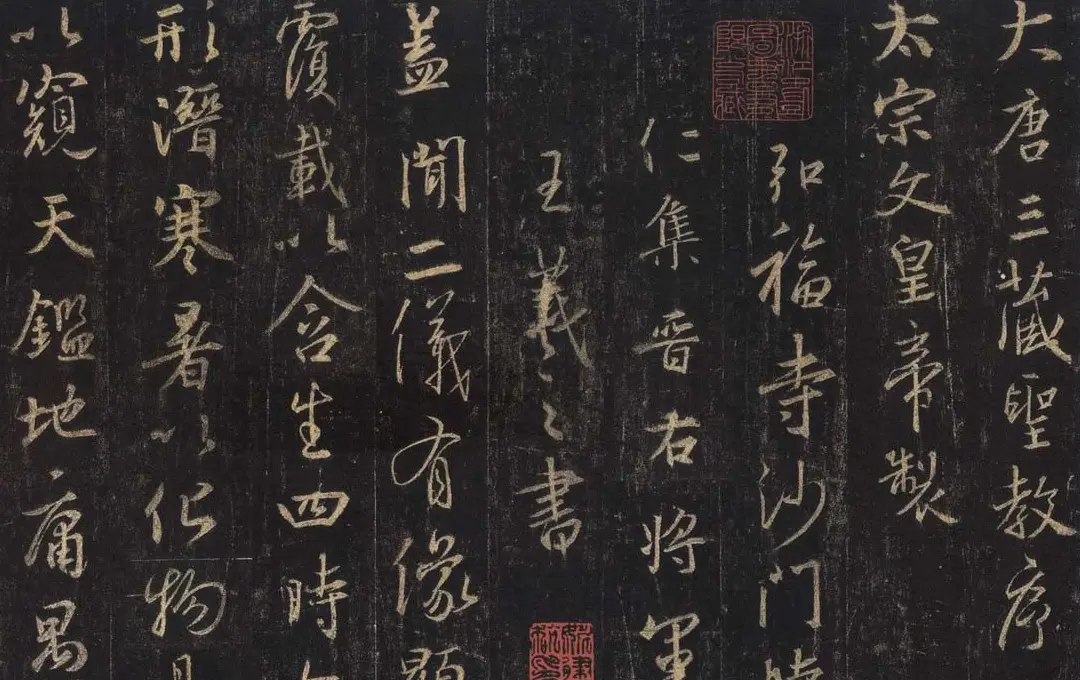 大唐三藏聖教序
太宗文皇帝製
弘福寺沙門
仁集晋右將軍
王羲之書
蓋聞二儀有像顯
覆載以含生四時
形潛寒暑以化物
以窺天鑑地庸愚